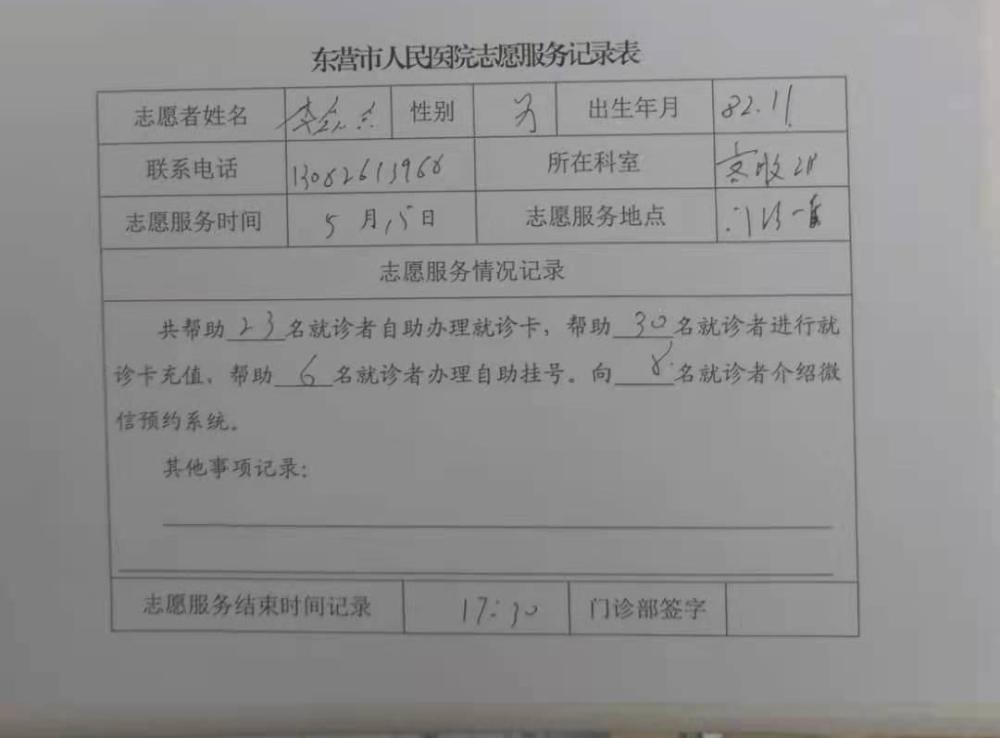 东营市人民医院志愿服务记录表
志愿者姓名 李 性别 男 出生年月 82.11
联系电话 13082613968 所在科室
志愿服务时间 5月15日 志愿服务地点 门诊一
志愿服务情况记录
共帮助23名就诊者自助办理就诊卡，帮助30名就诊者进行就
诊卡充值、帮助6名就诊者办理自助挂号。向8名就诊者介绍微
信预约系统。
其他事项记录：
志愿服务结束时间记录 17:30 门诊部签字